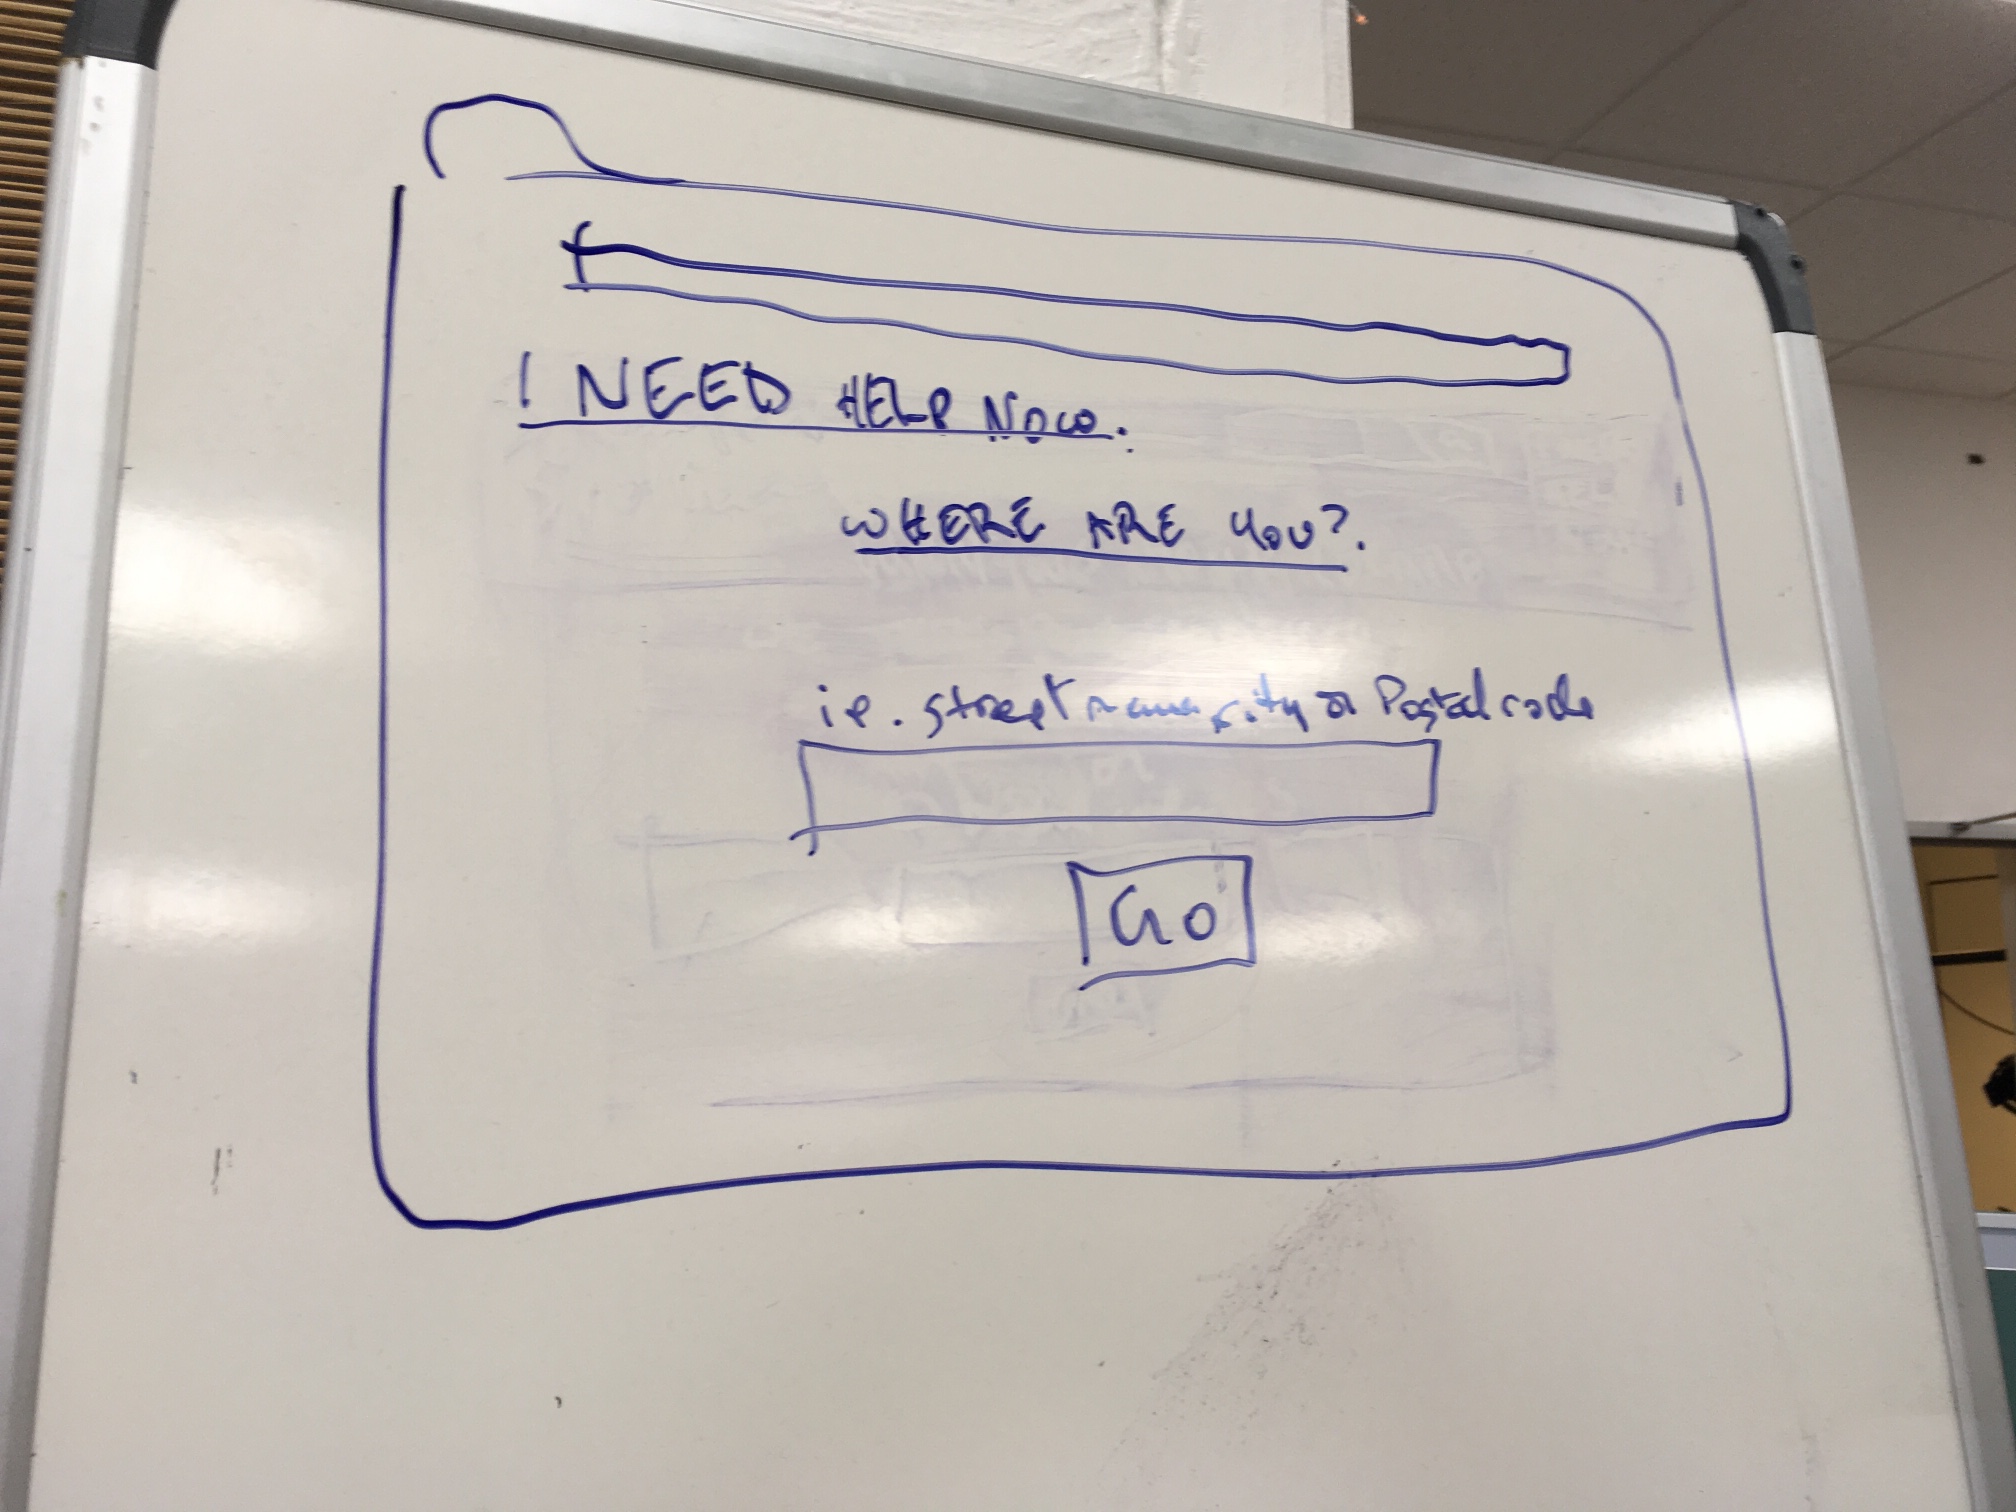 I NEED HELP NOW.
WHERE ARE YOU?.
i.e. street name, city or Postal code
GO